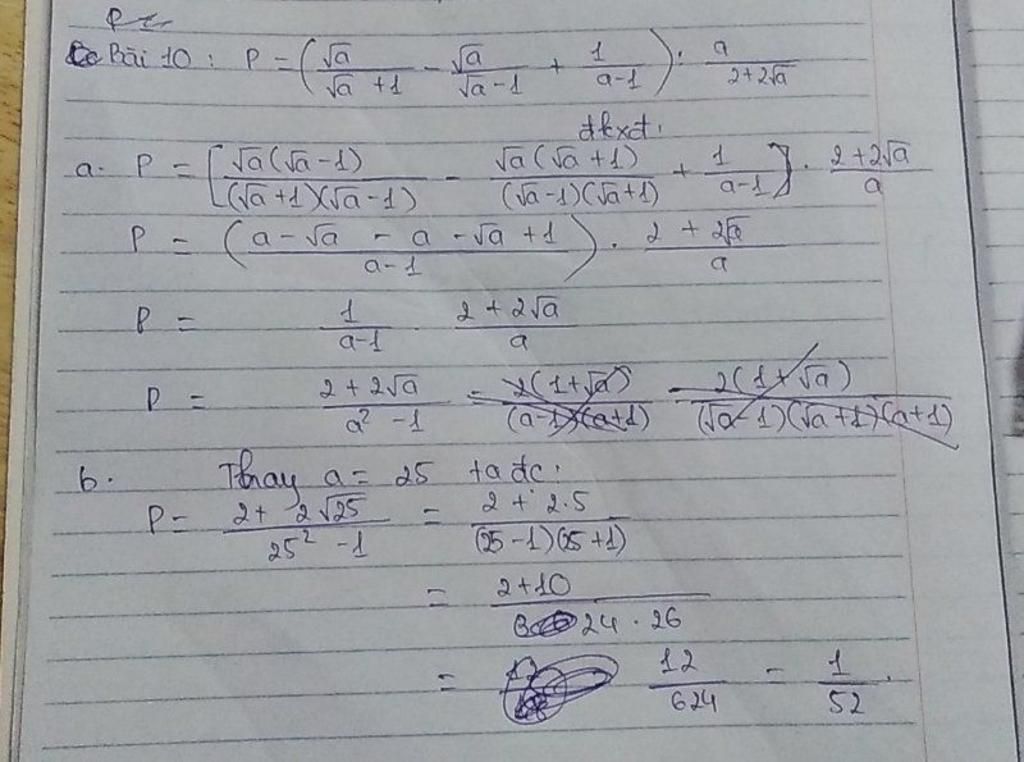 Bài 10 : P = (√a/(√a + 1) - √a/(√a - 1) + 1/(a-1)) : a/(2+2√a)
đkxđ:
a. P = [√a(√a - 1)/((√a + 1)(√a - 1)) - √a(√a + 1)/((√a - 1)(√a + 1)) + 1/(a-1)] . (2 + 2√a)/a
P = ((a - √a - a - √a + 1)/(a - 1)) . (2 + 2√a)/a
P = 1/(a-1) (2 + 2√a)/a
P = (2 + 2√a)/(a² - 1) = 2(1+√a)/((a-1)(a+1)) = 2(1+√a)/((√a-1)(√a+1)(a+1))
b. Thay a = 25 ta đc:
P = (2 + 2√25)/(25² - 1) = (2 + 2.5)/((25-1)(25+1))
= (2+10)/(24 . 26)
= 12/624 = 1/52 .